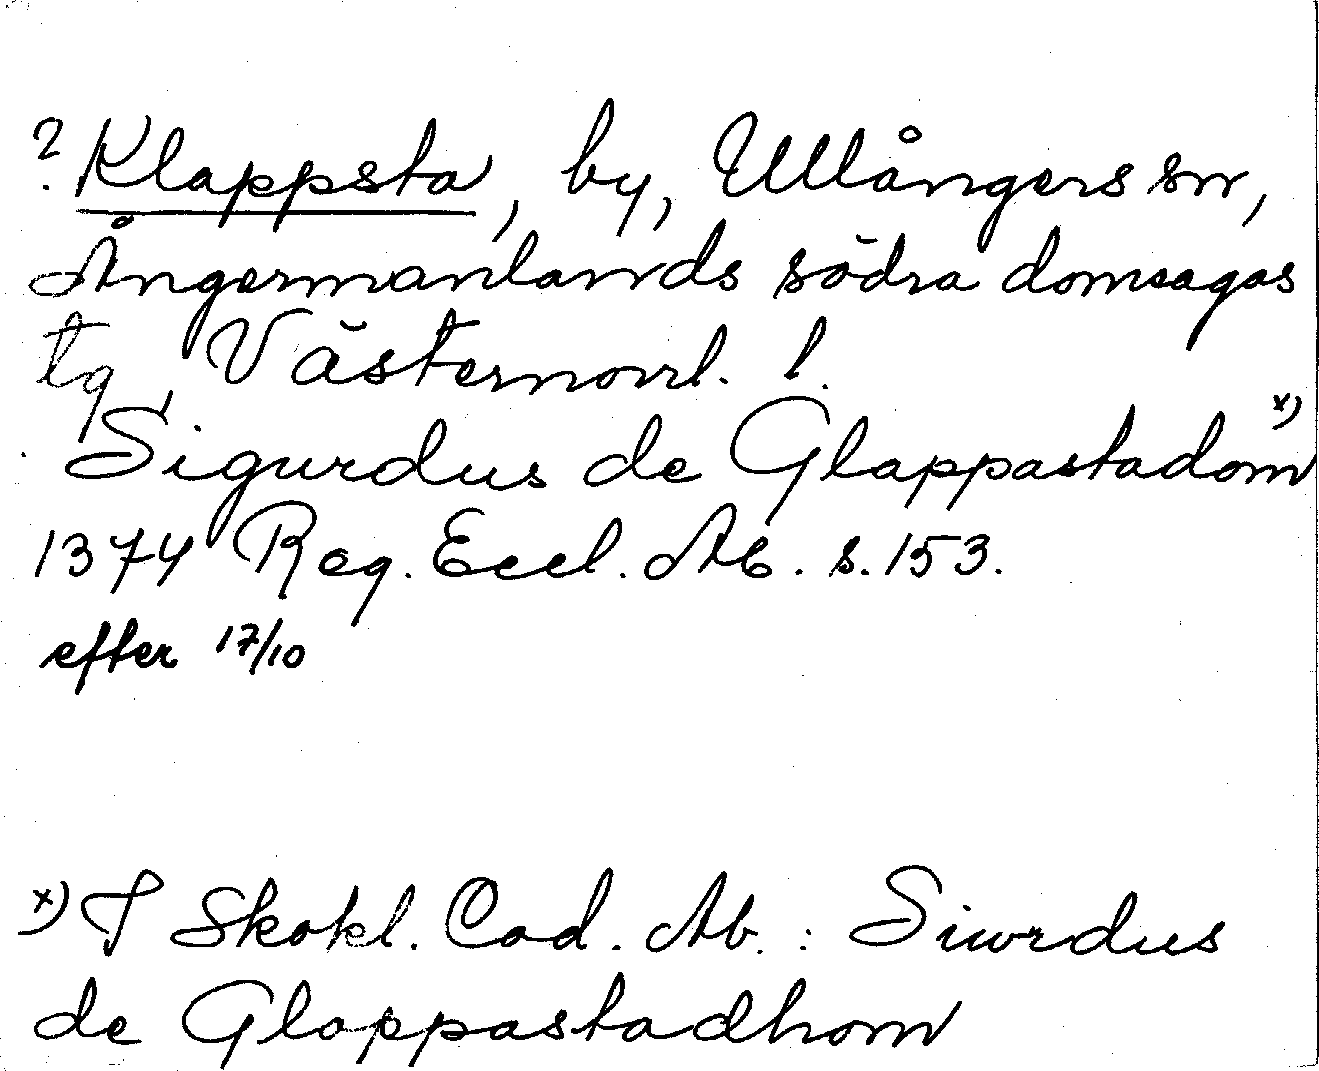 ? Klappsta, by, Ullångers sn,
Ångermanlands södra domsagas
tg, Västernorrl. l.
Sigurdus de Glappastadom x)
1374 Reg. Eccl. Ab. s. 153.
efter 17/10
x) I Skokl. Cod. Ab. : Siwrdus
de Glappastadhom